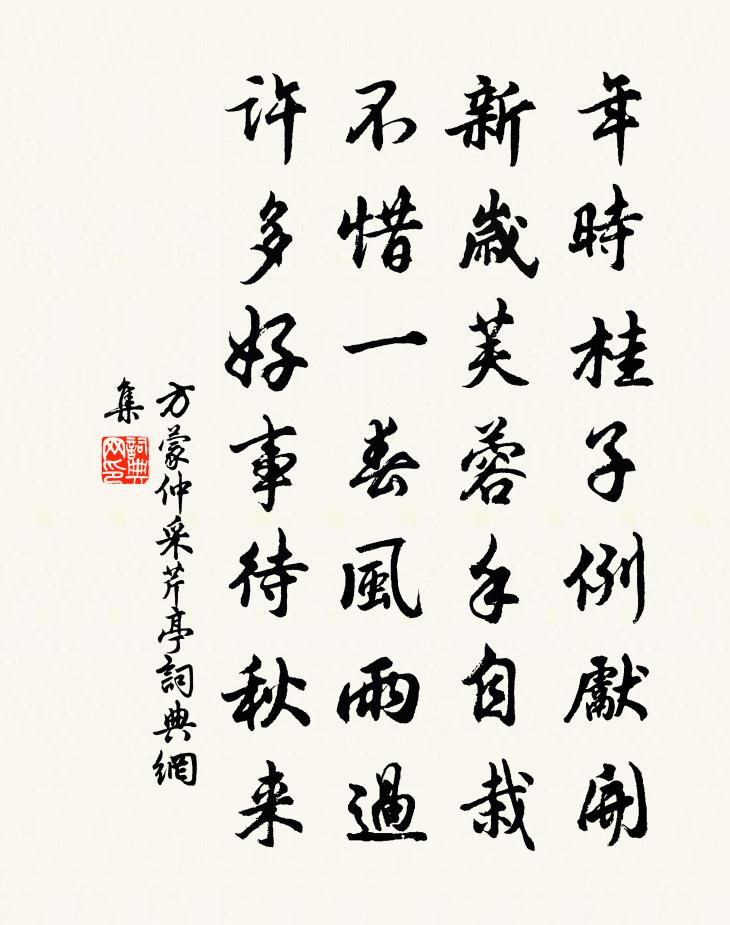 年時桂子例獻開
新歲芙蓉手自栽
不惜一春風雨過
許多好事待秋来
方蒙仲采芹亭詞典網
集
詞典網印